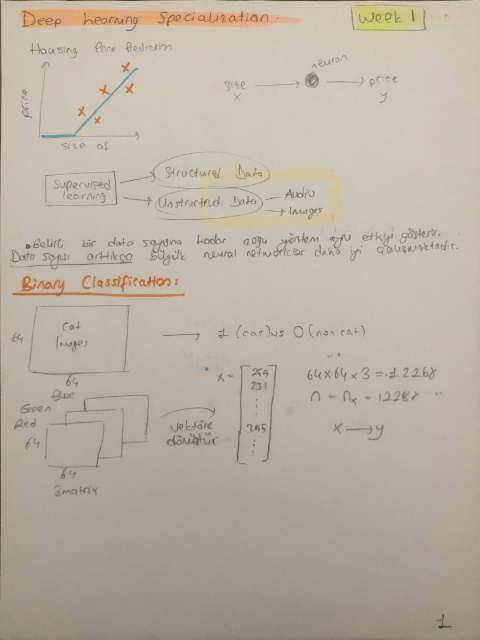 Deep Learning Specialization:
Week 1
Housing Price Prediction
price
size of
size
x
neuron
price
y
Supervised learning
Structured Data
Unstructured Data
Audio
Images
• Belirli bir data sayısına kadar çoğu yöntem aynı etkiyi gösterir.
Data sayısı arttıkça büyük neural networkler daha iyi çalışmaktadır.
Binary Classification:
64
Cat
Images
64
1 (cat) vs 0 (non cat)
Blue
Green
Red
64
64
3 matrix
Vektöre
dönüştür
x =
255
231
255
64x64x3 = 12268
n = nx = 12288
x → y
1